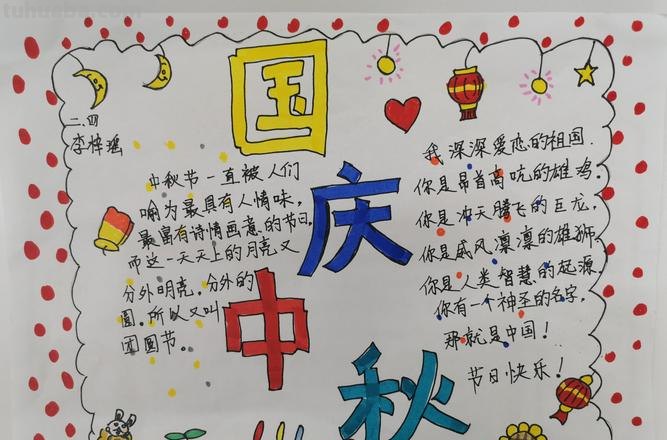 tuhuaba.com
国
庆
中
秋
二.四
李梓瑶
中秋节一直被人们
喻为最具有人情味,
最富有诗情画意的节日,
而这一天天上的月亮又
分外明亮,分外的
圆.所以又叫
团圆节。
我深深爱恋的祖国.
你是昂首高吭的雄鸡.
你是冲天腾飞的巨龙,
你是威风凛凛的雄狮
你是人类智慧的起源
你有一个神圣的名字,
那就是中国!
节日快乐!